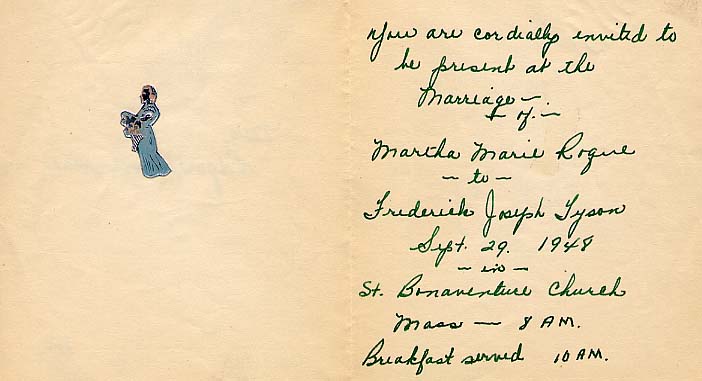 You are cordially invited to
be present at the
Marriage —
— of. —
Martha Marie Rogue
— to —
Frederick Joseph Tyson
Sept. 29. 1948
— in —
St. Bonaventure Church
Mass — 8 AM.
Breakfast served 10 AM.